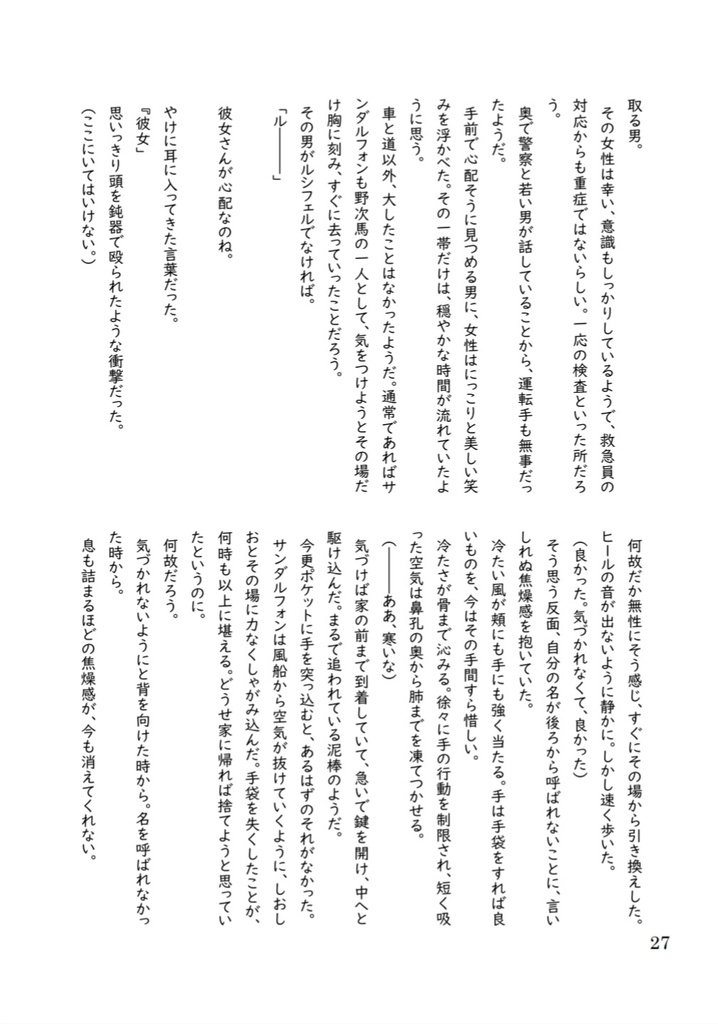 取る男。
　その女性は幸い、意識もしっかりしているようで、救急員の
対応からも重症ではないらしい。一応の検査といった所だろ
う。
　奥で警察と若い男が話していることから、運転手も無事だっ
たようだ。
　手前で心配そうに見つめる男に、女性はにっこりと美しい笑
みを浮かべた。その一帯だけは、穏やかな時間が流れていたよ
うに思う。
　車と道以外、大したことはなかったようだ。通常であればサ
ンダルフォンも野次馬の一人として、気をつけようとその場だ
け胸に刻み、すぐに去っていったことだろう。
　その男がルシフェルでなければ。
「ル―――」
彼女さんが心配なのね。
やけに耳に入ってきた言葉だった。
『彼女」
思いっきり頭を鈍器で殴られたような衝撃だった。
（ここにいてはいけない。）
　何故だか無性にそう感じ、すぐにその場から引き換えした。
ヒールの音が出ないように静かに。しかし速く歩いた。
（良かった。気づかれなくて、良かった）
　そう思う反面、自分の名が後ろから呼ばれないことに、言い
しれぬ焦燥感を抱いていた。
　冷たい風が頬にも手にも強く当たる。手は手袋をすれば良
いものを、今はその手間すら惜しい。
　冷たさが骨まで沁みる。徐々に手の行動を制限され、短く吸
った空気は鼻孔の奥から肺までを凍てつかせる。
（―――ああ、寒いな）
　気づけば家の前まで到着していて、急いで鍵を開け、中へと
駆け込んだ。まるで追われている泥棒のようだ。
　今更ポケットに手を突っ込むと、あるはずのそれがなかった。
　サンダルフォンは風船から空気が抜けていくように、しおし
おとその場に力なくしゃがみ込んだ。手袋を失くしたことが、
何時も以上に堪える。どうせ家に帰れば捨てようと思ってい
たというのに。
　何故だろう。
　気づかれないようにと背を向けた時から。名を呼ばれなかっ
た時から。
　息も詰まるほどの焦燥感が、今も消えてくれない。
27